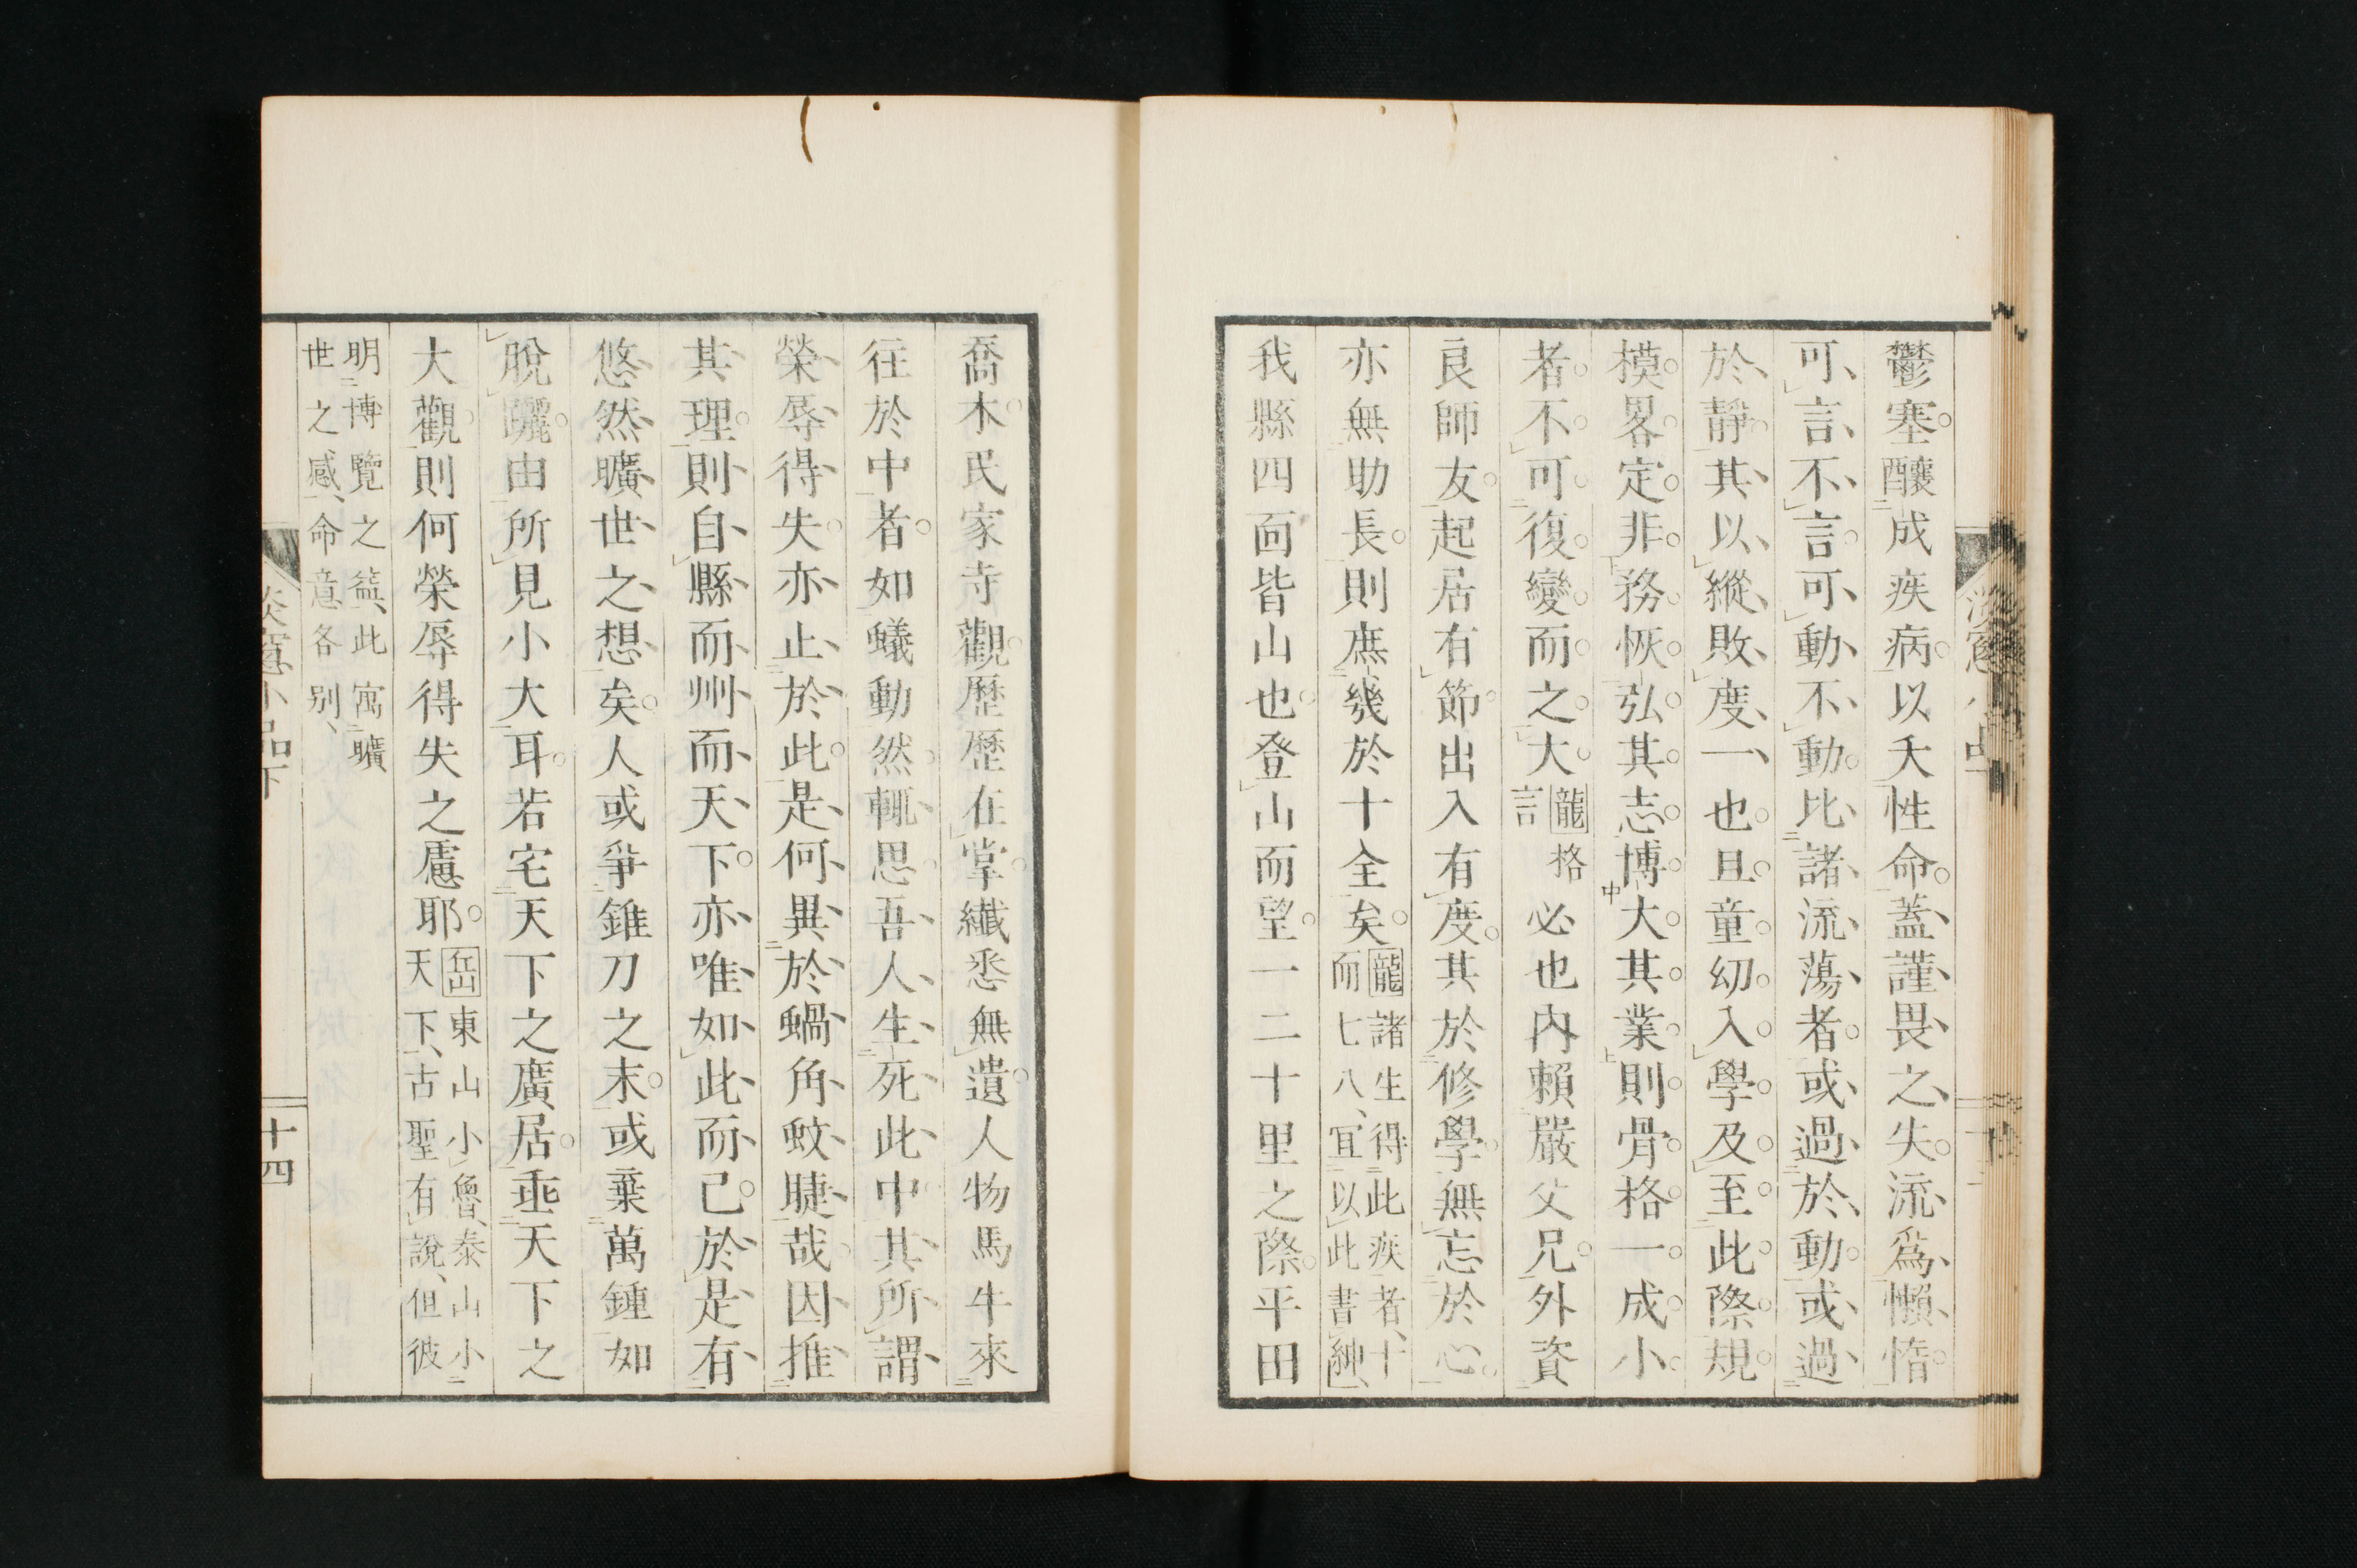 鬱塞釀成疾病以夭性命蓋謹畏之失流爲懶惰
可言不言可動不動比諸流蕩者或過於動或過
於靜其以縱敗度一也且童幼入學及至此際規
模畧定非務恢弘其志博大其業則骨格一成小
者不可復變而之大龍格言必也內賴嚴父兄外資
良師友起居有節出入有度其於修學無忘於心
亦無助長則庶幾於十全矣龍諸生得此疾者、十
而七八、宜以此書紳、
我縣四面皆山也登山而望一二十里之際平田
喬木民家寺觀歷歷在掌纎悉無遺人物馬牛來
往於中者如蟻動然輒思吾人生死此中其所謂
榮辱得失亦止於此是何異於蝸角蚊睫哉因推
其理則自縣而州而天下亦唯如此而已於是有
悠然曠世之想矣人或爭錐刀之末或棄萬鍾如
脫躧由所見小大耳若宅天下之廣居乖天下之
大觀則何榮辱得失之慮耶岳東山小魯、泰山小
天下、古聖有說、但彼
明博覽之益、此寓曠
世之感、命意各別、
淡窻小品下
十四